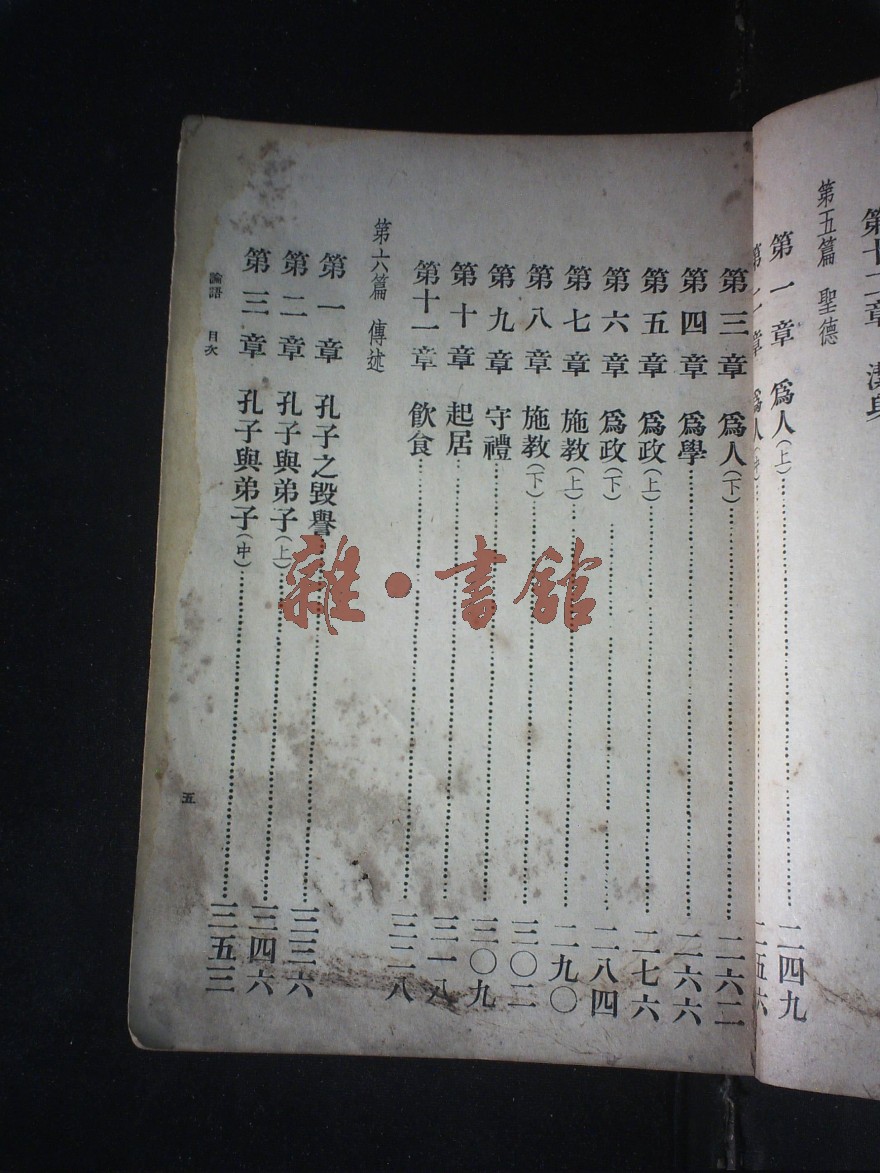 第十二章 潔身
第五篇 聖德
第一章 爲人(上)……二四九
第二章 爲人(中)……二五六
第三章 爲人(下)……二六二
第四章 爲學……二六六
第五章 爲政(上)……二七六
第六章 爲政(下)……二八四
第七章 施教(上)……二九〇
第八章 施教(下)……三〇二
第九章 守禮……三〇九
第十章 起居……三一八
第十一章 飲食……三二八
第六篇 傳述
第一章 孔子之毀譽……三三六
第二章 孔子與弟子(上)……三四六
第三章 孔子與弟子(中)……三五三
論語 目次
五
雜·書館